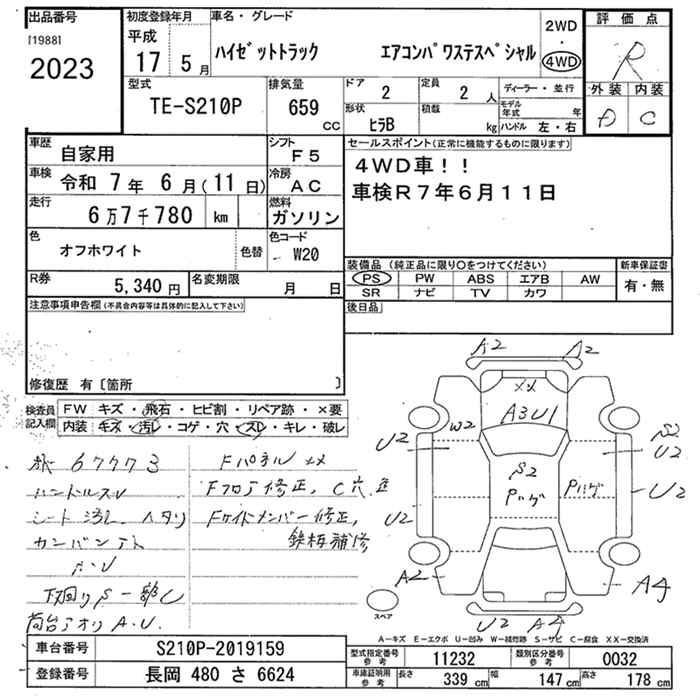 出品番号
[1988]
2023
初度登録年月
平成
17 5月
車名・グレード
ハイゼットトラック エアコンパワステスペシャル
2WD
・
4WD
評価点
R
外装 内装
D C
型式
TE-S210P
排気量
659
CC
ドア
2
定員
2 人
形状
ヒラB
積載
kg
ディーラー・並行
モデル年式 年
ハンドル 左・右
車歴
自家用
シフト
F5
車検
令和 7年 6月(11日)
冷房
AC
走行
6万7千780 km
燃料
ガソリン
色
オフホワイト
色替
色コード
W20
R券
5,340円
名変期限
月 日
セールスポイント(正常に機能するものに限ります)
4WD車!!
車検R7年6月11日
装備品 (純正品に限り〇をつけてください)
新車保証書
PS PW ABS エアB AW
有・無
SR ナビ TV カワ
後日品
注意事項申告欄(不具合内容等は具体的に記入して下さい)
修復歴 有〔箇所 〕
検査員記入欄
FW キズ・飛石・ヒビ割・リペア跡・×要
内装 キズ・汚レ・コゲ・穴・スレ・キレ・破レ
67773
ハンドルスレ
シート汚レ ヘタリ
A・U
下廻りS一部C
荷台アオリA.U.
Fパネルメメ
Fフロア修正,C穴
Fサイドメンバー修正,
鉄板補修
A2
A2
メメ
A3U1
U2
W2
S2
U2
S2
Pハゲ
Pハゲ
U2
U2
A2
A4
U2
A4
スペア
A-キズ E-エクボ U-凹み W-補修跡 S-サビ C-腐食 XX-交換済
車台番号
S210P-2019159
登録番号
長岡 480 さ 6624
型式指定番号
参考
11232
類別区分番号
参考
0032
車庫証明用
参考
長さ 339 cm 幅 147 cm 高さ 178 cm